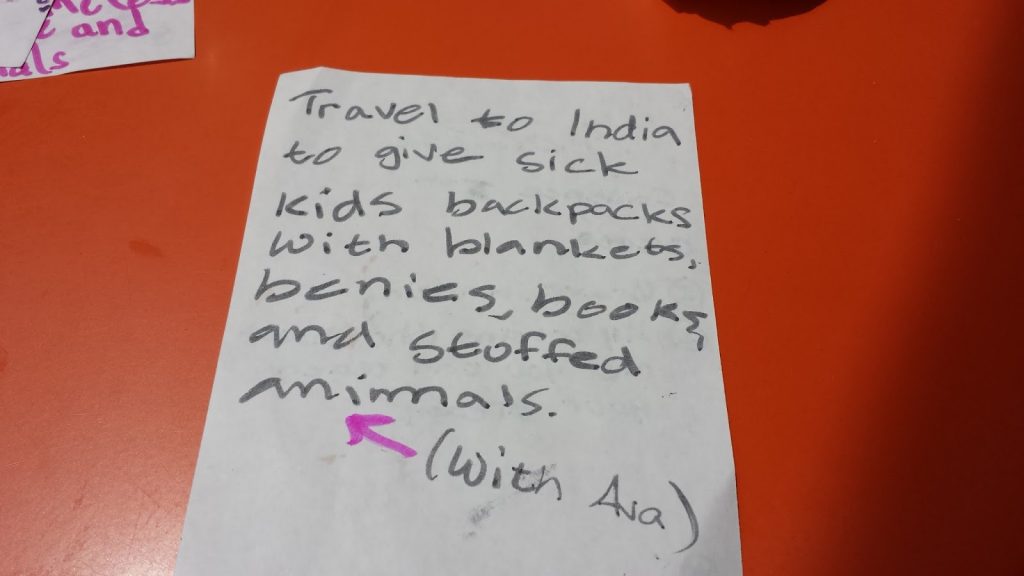 and
als
Travel to India
to give sick
kids backpacks
with blankets,
benies, books,
and stoffed
animals.
(With Ava)